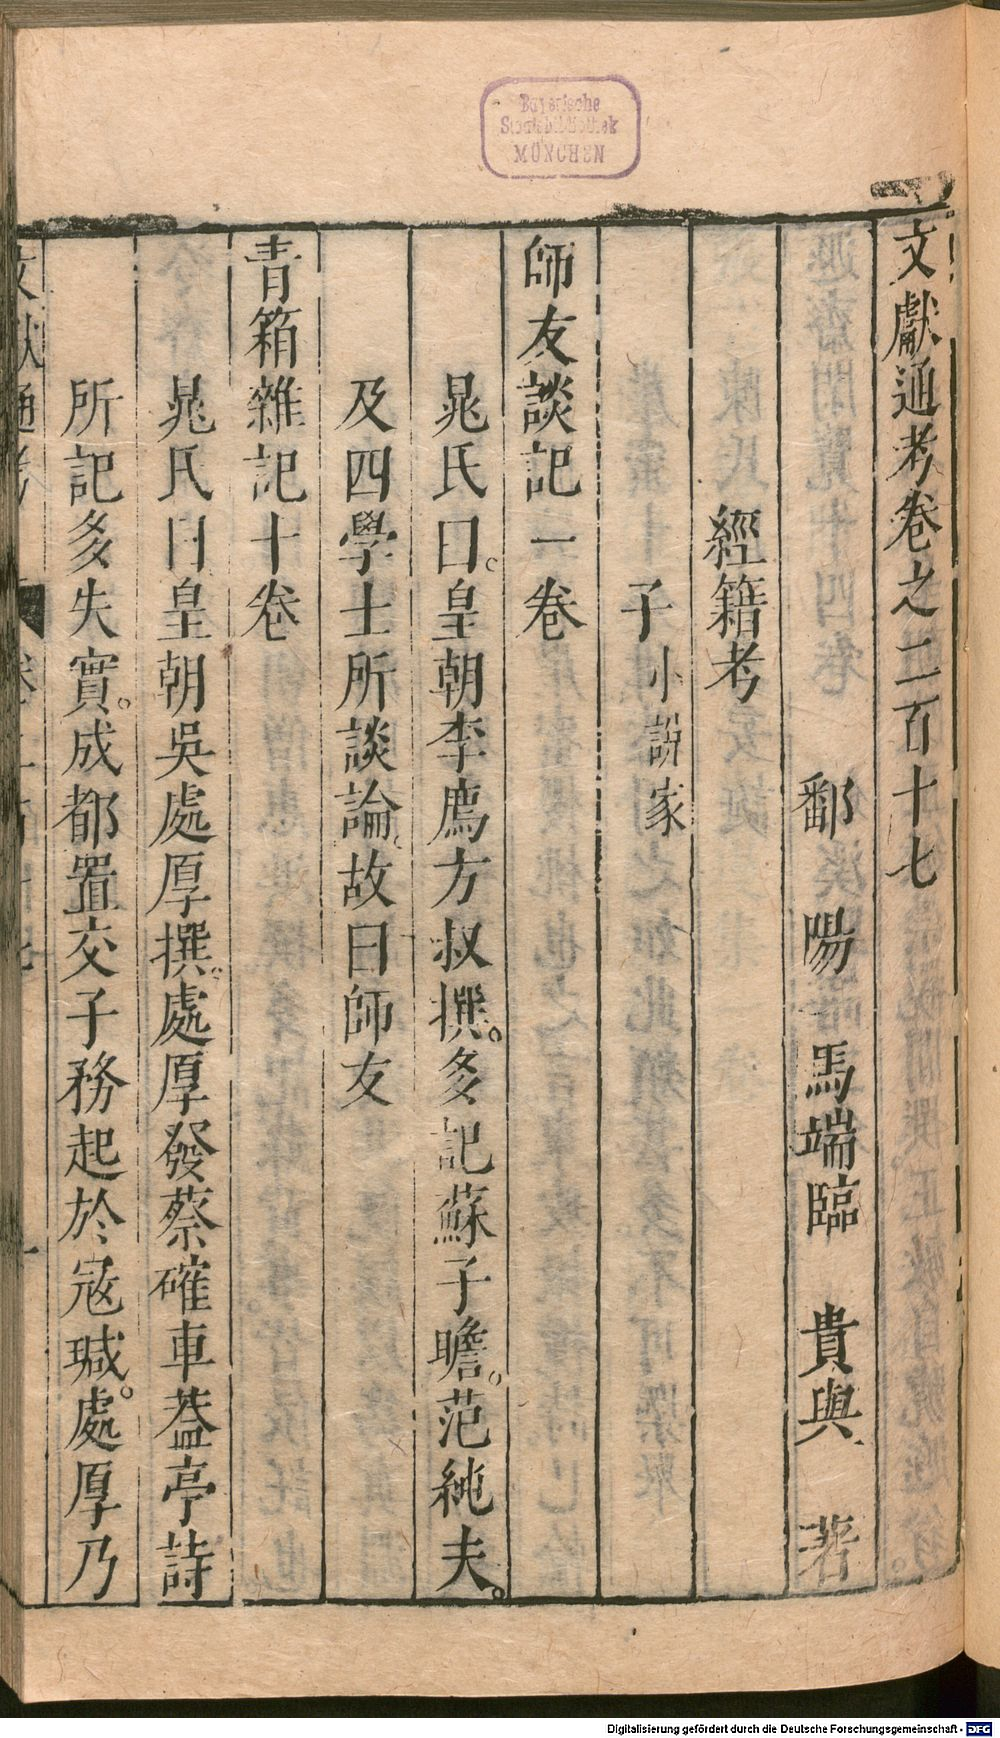 Bayerische
Staatsbibliothek
MÜNCHEN
文獻通考卷之二百十七
鄱陽馬端臨貴與著
經籍考
子小說家
師友談記一卷
晁氏曰。皇朝李廌方叔撰。多記蘇子瞻。范純夫。
及四學士所談論。故曰師友
青箱雜記十卷
晁氏曰皇朝吳處厚撰。處厚發蔡確車蓋亭詩
所記多失實。成都置交子務起於寇瑊。處厚乃
Digitalisierung gefördert durch die Deutsche Forschungsgemeinschaft - DFG